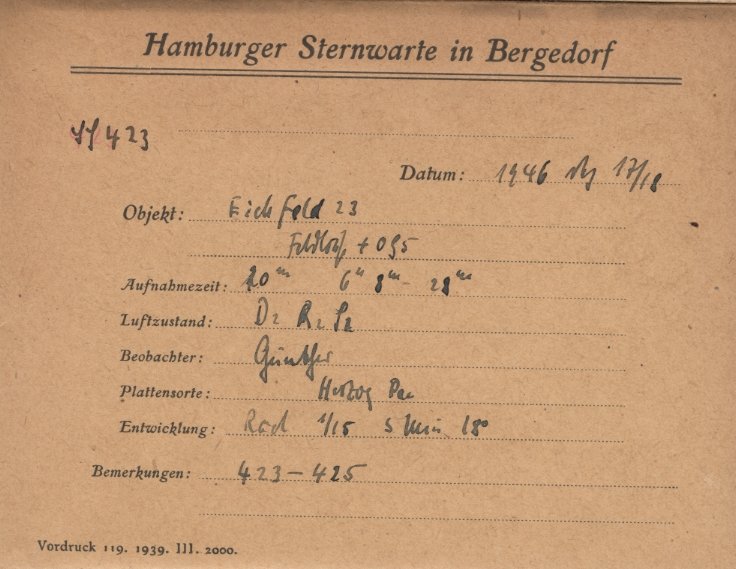 Hamburger Sternwarte in Bergedorf
423
Datum: 1946 17/18
Objekt: Eichfeld 23
Aufnahmezeit: 20ᵐ 6ʰ 8ᵐ - 28ᵐ
Luftzustand: D₂ R₂ S₂
Beobachter: Günther
Plattensorte: Herzog Pan
Entwicklung: Rod 1/15 5 Min 18°
Bemerkungen: 423 – 425
Vordruck 119. 1939. III. 2000.